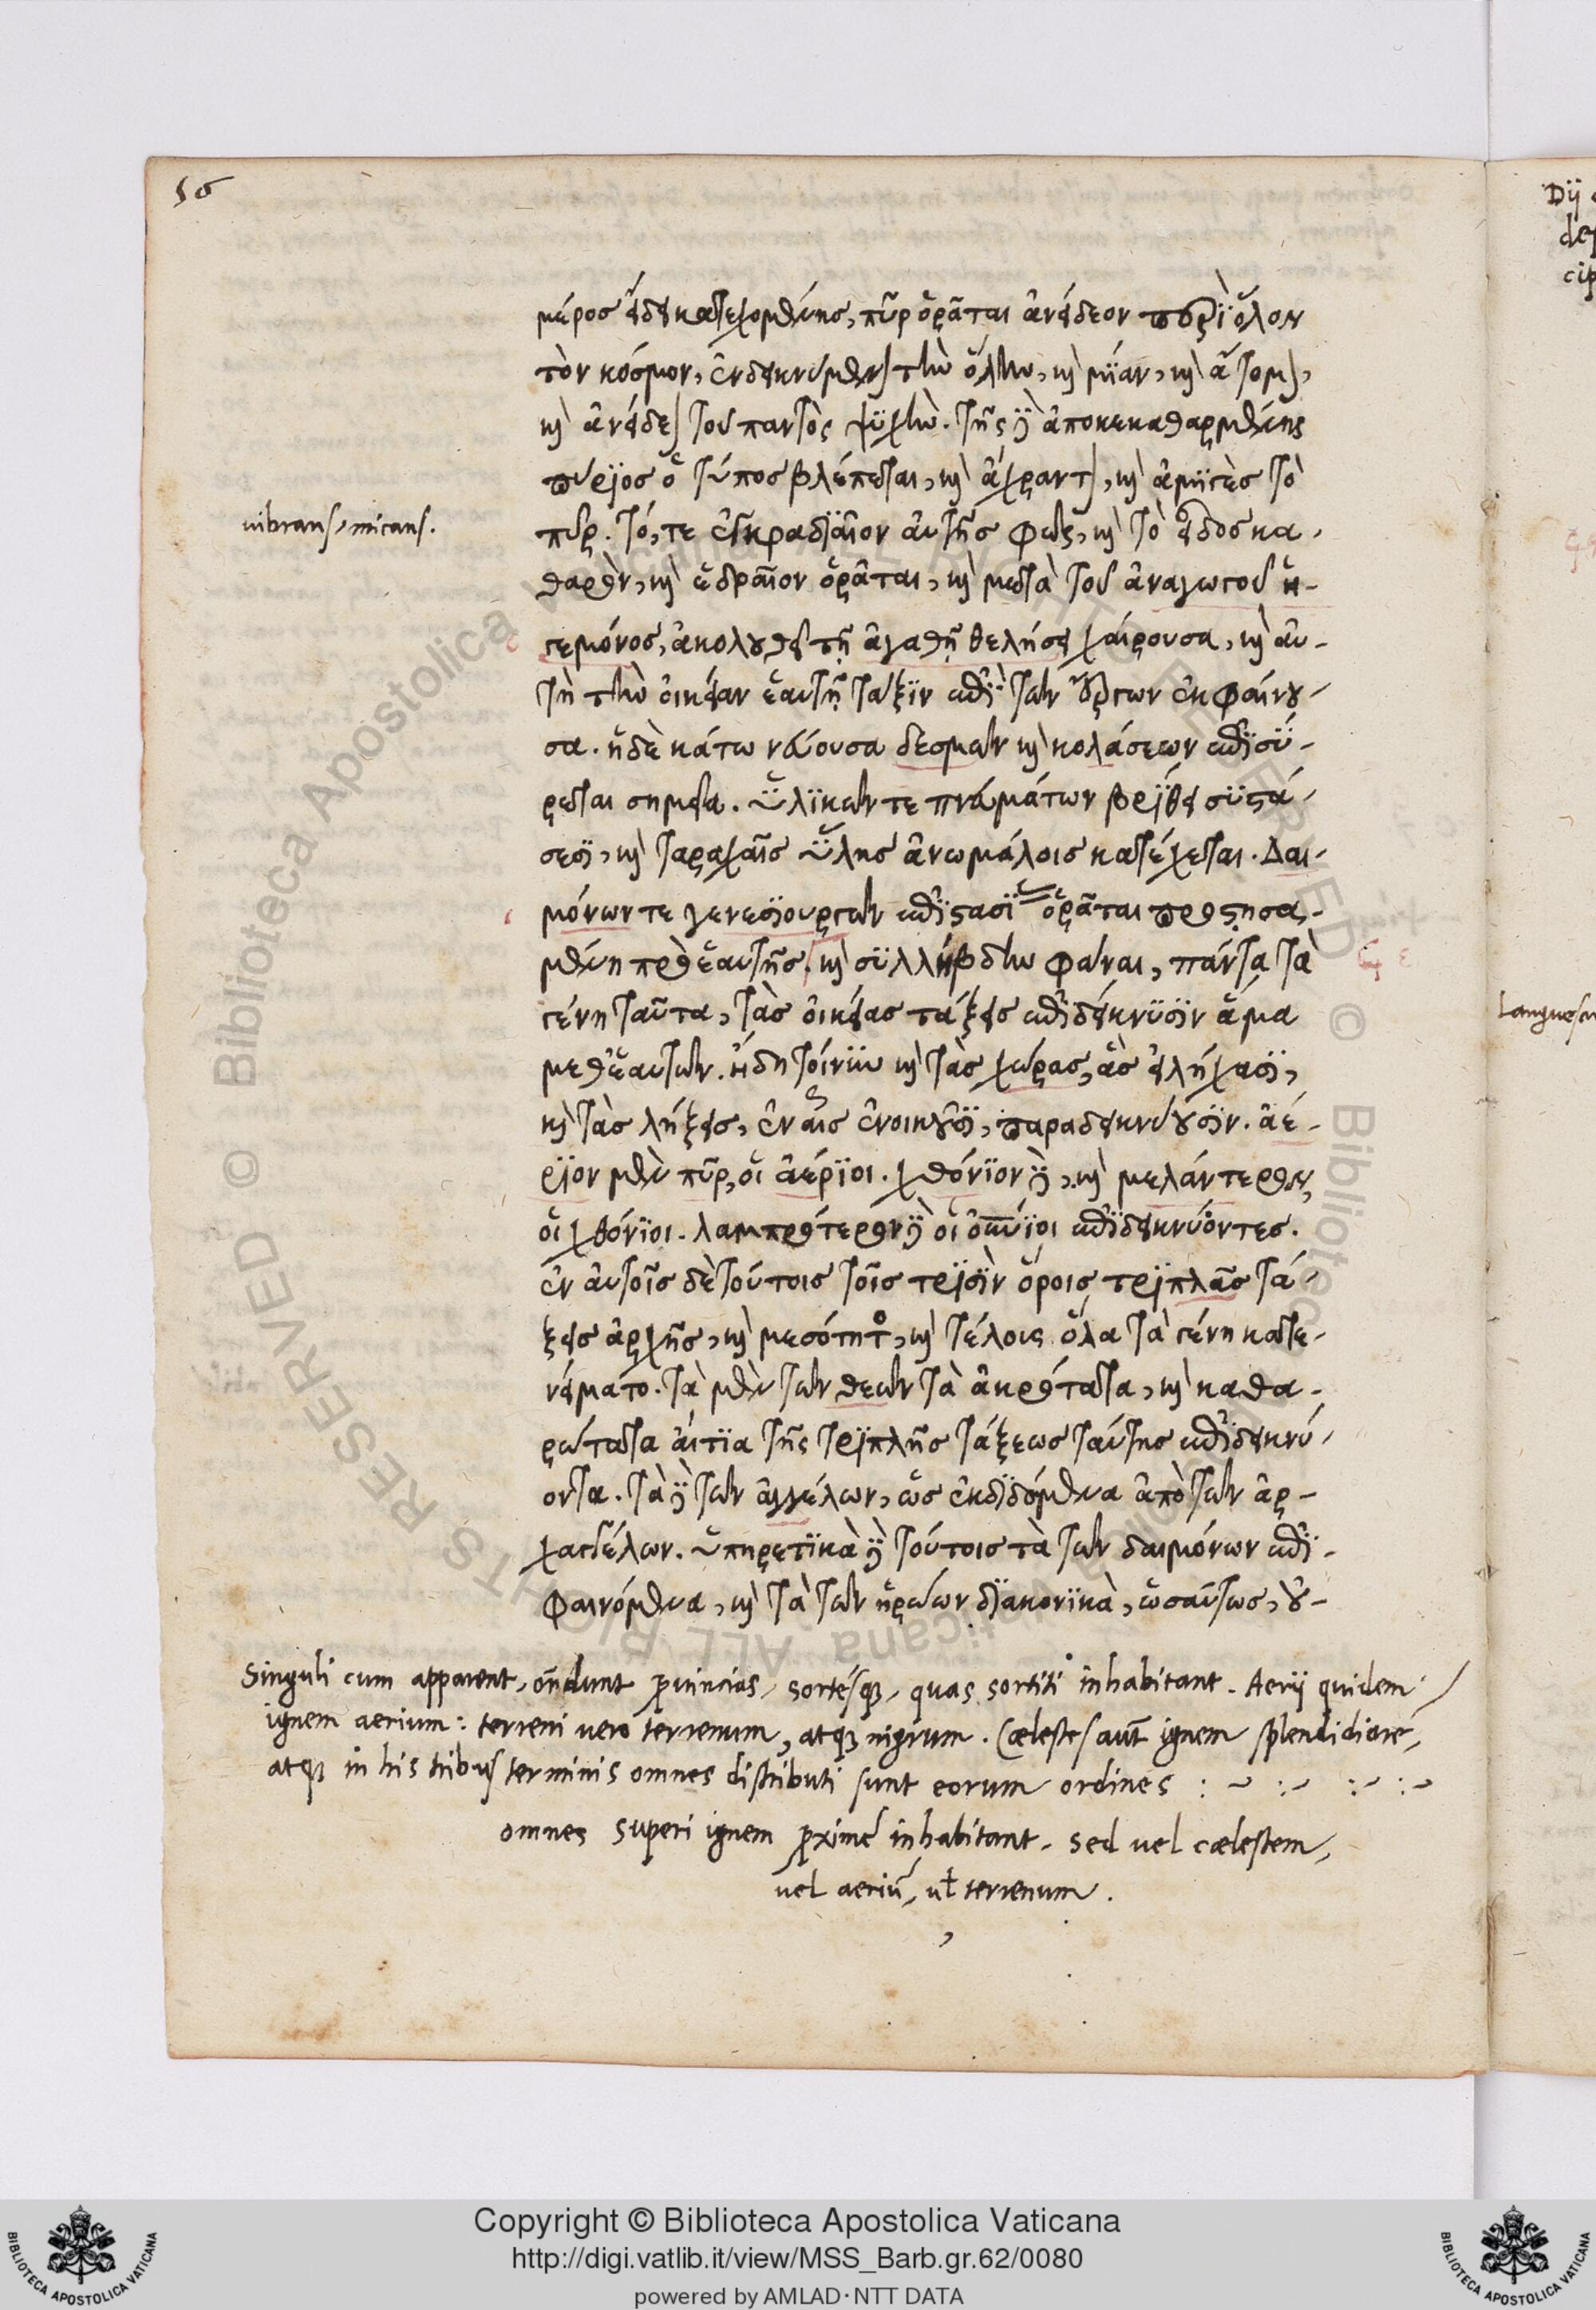 56
μέρος εἴδει κατεχομένης, πῦρ ὁρᾶται ἀνείδεον περὶ ὅλον
τὸν κόσμον, ἐνδεικνύμενον τὴν ὅλην, καὶ μίαν, καὶ ἄτομον,
καὶ ἀνείδεον τοῦ παντὸς ψυχήν. τῆς δὲ ἀποκεκαθαρμένης
πύριος ὁ τύπος βλέπεται, καὶ ἄχραντον, καὶ ἀμιγὲς τὸ
vibrans, micans.
πῦρ. τό, τε ἐγκραδιαῖον αὐτῆς φῶς, καὶ τὸ εἶδος κα-
θαρὸν, καὶ ἑδραῖον ὁρᾶται, καὶ μετὰ τοῦ ἀναγωγοῦ ἡ-
γεμόνος, ἀκολουθεῖ τῇ ἀγαθῇ θελήσει χαίρουσα, καὶ αὐ-
τὴ τὴν οἰκείαν ἑαυτῇ τάξιν ἐπὶ τῶν ἔργων ἐκφαίνου-
σα. ἡ δὲ κάτω νεύουσα δεσμῶν καὶ κολάσεων ἐπισύ-
ρεται σημεῖα. ὑλικῶν τε πνευμάτων βρίθει συστά-
σεσι, καὶ ταραχαῖς ὕλης ἀνωμάλοις κατέχεται. Δαι-
μόνων τε γενεσιουργῶν ἐπιστασί ὁρᾶται προστησα-
μένη πρὸ ἑαυτῆς. καὶ συλλήβδην φάναι, πάντα τὰ
γένη ταῦτα, τὰς οἰκείας τάξεις ἐπιδείκνυσιν ἅμα
μεθ' ἑαυτῶν. ἤδη τοίνυν καὶ τὰς χώρας, ἃς εἰλήχασι,
καὶ τὰς λήξεις, ἐν αἷς ἐνοικοῦσι, παραδεικνύουσιν. ἀέ-
ριον μὲν πῦρ, οἱ ἀέριοι. χθόνιον δὲ, καὶ μελάντερον,
οἱ χθόνιοι. λαμπρότερον δὲ οἱ οὐνίοι ἐπιδεικνύοντες.
ἐν αὐτοῖς δὲ τούτοις τοῖς τρισὶν ὅροις τριπλᾶς τά-
ξεις ἀρχῆς, καὶ μεσότητος, καὶ τέλους ὅλα τὰ γένη κατε-
νείματο. τὰ μὲν τῶν θεῶν τὰ ἀκρότατα, καὶ καθα-
ρώτατα αἴτια τῆς τριπλῆς τάξεως ταύτης ἐπιδεικνύ-
οντα. τὰ δὲ τῶν ἀγγέλων, ὡς ἐκδιδόμενα ἀπὸ τῶν ἀρ-
χαγγέλων. ὑπηρετικὰ δὲ τούτοις τὰ τῶν δαιμόνων ἐπι-
φαινόμενα, καὶ τὰ τῶν ἡρώων διακονικὰ, ὡσαύτως, οὐ-
Singuli cum apparent, ondunt provincias, sortesq, quas sortiti inhabitant. Aerij quidem
ignem aerium: terreni vero terrenum, atq nigrum. Cælestes aut ignem splendidiore,
atq in his tribus terminis omnes distributi sunt eorum ordines
omnes superi ignem proxime inhabitant. sed vel cælestem,
vel aeriū, ul terrenum.
Dij
Copyright © Biblioteca Apostolica Vaticana
http://digi.vatlib.it/view/MSS_Barb.gr.62/0080
powered by AMLAD · NTT DATA
BIBLIOTECA APOSTOLICA VATICANA
BIBLIOTECA APOSTOLICA VATICANA